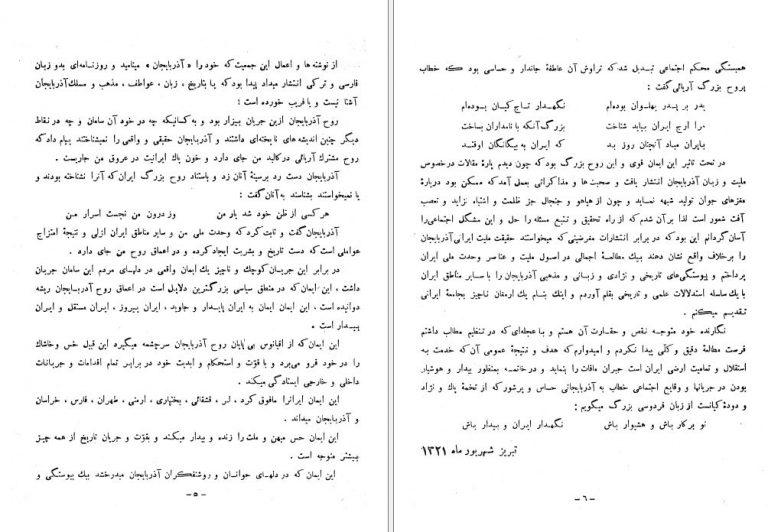 از نوشته ها و اعمال این جمعیت که خود را « آذربایجان » مینامید و روزنامه‌ای بدو زبان
فارسی و ترکی انتشار میداد پیدا بود که با بتاریخ ، زبان ، عواطف ، مذهب و مسلك آذربایجان
آشنا نیست و یا فریب خورده است :
روح آذربایجان ازین جریان بیزار بود و بکسانیکه چه در خود آن سامان و چه در نقاط
دیگر چنین اندیشه های ناپخته‌ای داشتند و آذربایجان حقیقی و واقعی را نمیشناختند پیام داد که
روح مشترك آریائی در کالبد من جای دارد و خون پاك ایرانیت در عروق من جاریست .
آذربایجان دست رد برسینهٔ آنان زد و باستناد روح بزرگ ایران که آنرا نشناخته بودند و
یا نمیخواستند بشناسند به آنان گفت :
هر کسی از ظن خود شد یار من وز درون من نجست اسرار من
آذربایجان گفت و ثابت کرد که وحدت ملی من و سایر مناطق ایران ازلی و نتیجهٔ امتزاج
عواملی است که دست تاریخ و بشریت ایجاد کرده و در اعماق روح من جای دارد .
در برابر این جریان کوچك و ناچیز یك ایمان واقعی در دلهای مردم این سامان جریان
داشت . این ایمان که در منطق سیاسی بزرگترین دلایل است در اعماق روح آذربایجان ریشه
دوانیده است ، این ایمان ایمان به ایران پایدار و جاوید ، ایران پیروز ، ایران مستقل و ایران
بیدار است
این ایمان که از اقیانوس بی‌پایان روح آذربایجان سرچشمه میگیرد این قبیل خس و خاشاك
را در خود فرو می‌برد و با قوّت و استحکام و ابدیت خود در برابر تمام اقدامات و جریانات
داخلی و خارجی ایستادگی میکند .
این ایمان ایرانرا مافوق کرد ، لر ، قشقائی ، بختیاری ، ارمنی ، طهران ، فارس ، خراسان
و آذربایجان میداند .
این ایمان حس میهن و ملت را زنده و بیدار میکند و بقوّت و جریان تاریخ از همه چیز
بیشتر متوجه است .
این ایمان که در دلهای جوانان و روشنفکران آذربایجان میدرخشد بیك پیوستگی و
-۵-
همبستگی محکم اجتماعی تبدیل شد که تراوش آن عاطفهٔ جاندار و حساسی بود که خطاب
بروح بزرگ آریائی گفت :
پدر بر پدر پهلوان بوده‌ام نگهدار تاج کیان بوده‌ام
مرا ارج ایران بباید شناخت بزرگ آنکه با نامداران بساخت
بایران مباد آنچنان روز بد که ایران به بیگانگان اوفتد
در تحت تاثیر این ایمان قوی و این روح بزرگ بود که چون دیدم پارهٔ مقالات درخصوص
ملیت و زبان آذربایجان انتشار یافت و صحبت ها و مذاکراتی بعمل آمد که ممکن بود دربارهٔ
مغزهای جوان تولید شبهه نماید و چون از هیاهو و جنجال جز ظلمت و اشتباه نزاید و تعصب
آفت شعور است لذا بر آن شدم که از راه تحقیق و تتبع مسئله را حل و این مشکل اجتماعی را
آسان گردانم این بود که در برابر انتشارات مغرضینی که میخواستند حقیقت ملیت ایرانی آذربایجان
را برخلاف واقع نشان دهند بیك مطالعهٔ اجمالی در اصول ملیت و عناصر وحدت ملی ایران
پرداختم و پیوستگی‌های تاریخی و نژادی و زبانی و مذهبی آذربایجان را با سایر مناطق ایران
با یك سلسله استدلالات علمی و تاریخی بقلم آوردم و اینك بنام یك ارمغان ناچیز بجامعهٔ ایرانی
تقدیم میکنم .
نگارنده خود متوجه نقص و حقارت آن هستم و با عجله‌ای که در تنظیم مطالب داشتم
فرصت مطالعهٔ دقیق و کلّی پیدا نکردم و امیدوارم که هدف و نتیجهٔ عمومی آن که خدمت به
استقلال و تمامیت ارضی ایران است جبران مافات را بنماید و در خاتمه بمنظور بیدار و هوشیار
بودن در جریانها و وقایع اجتماعی خطاب به آذربایجانی حساس و پرشور که از تخمهٔ پاك و نژاد
و دودهٔ کیانست از زبان فردوسی بزرگ میگویم :
تو بر کار باش و هشیوار باش نگهدار ایران و بیدار باش
تبریز شهریور ماه ۱۳۲۱
-۶-